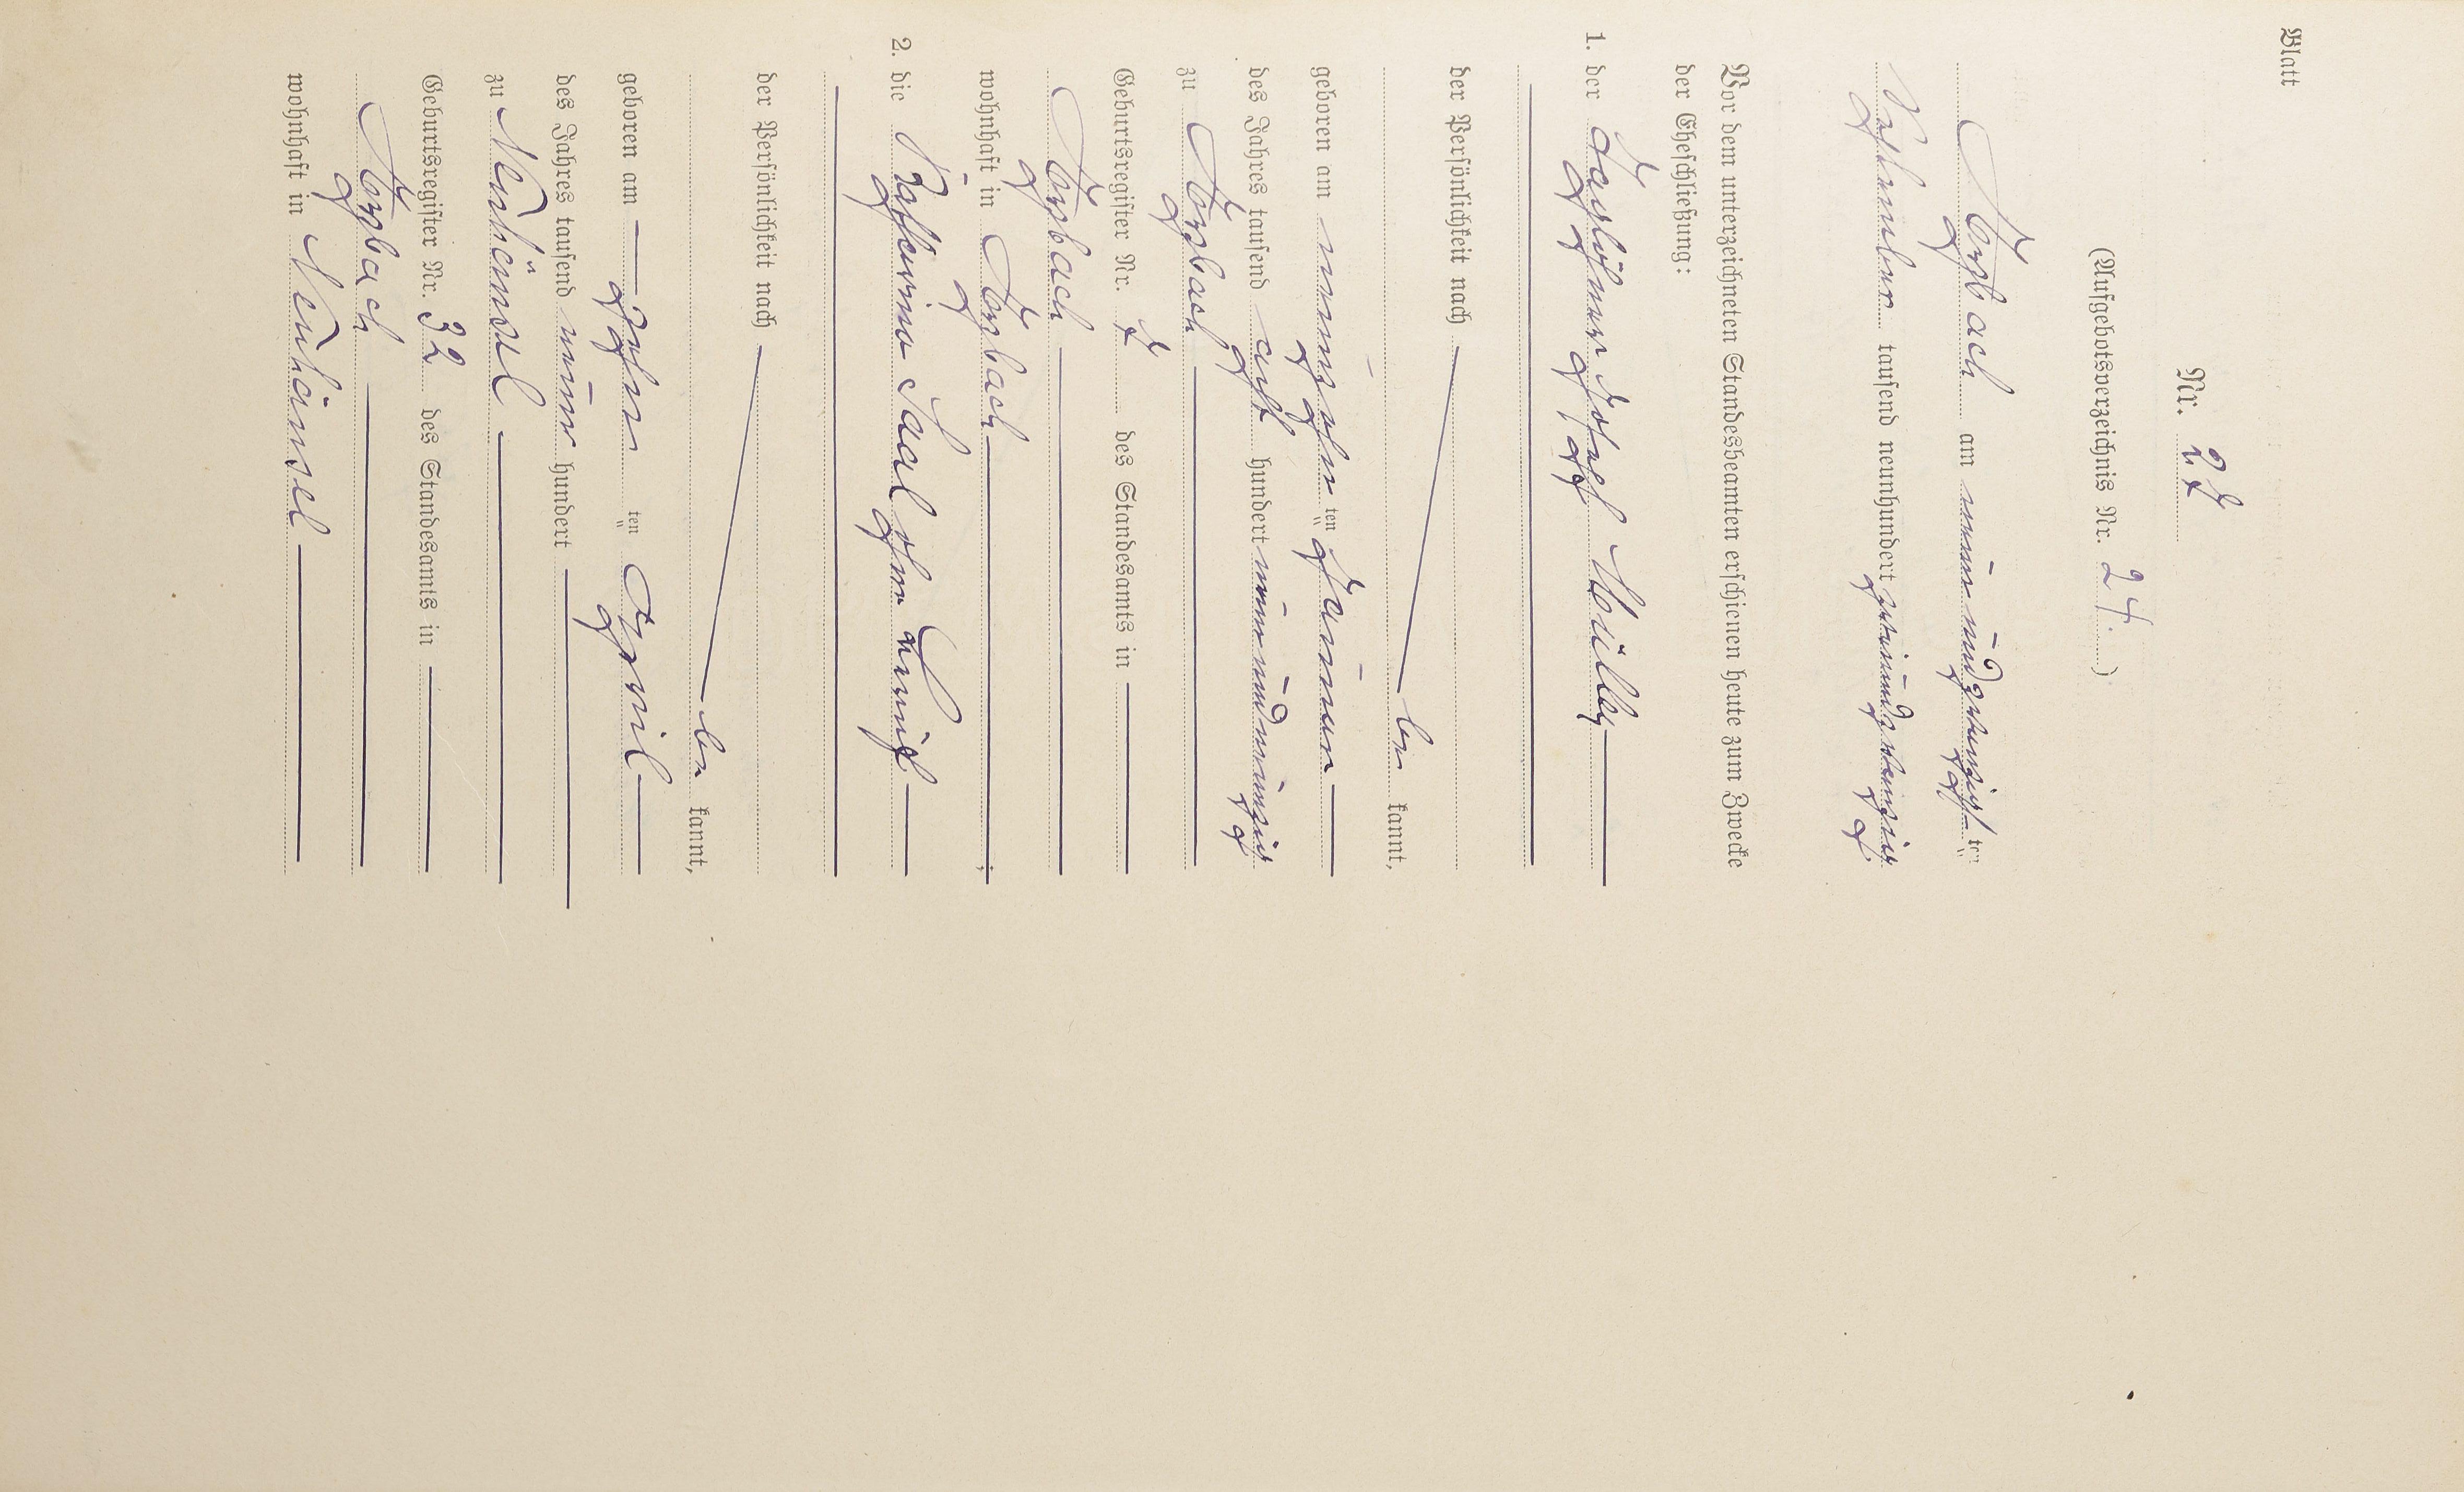 Blatt
Nr. 27
(Aufgebotsverzeichnis Nr. 24.)
Torzbach am neunundzwanzigsten
November tausend neunhundert zweiundzwanzig
Vor dem unterzeichneten Standesbeamten erschienen heute zum Zwecke
der Eheschließung:
1. der Taglöhner Josef Müller
der Persönlichkeit nach
be kannt,
geboren am neunzehn ten Januar
des Jahres tausend acht hundert neunundneunzig
zu
Geburtsregister Nr. 7 des Standesamts in
wohnhaft in
2. die Katharina Saal ohne Beruf
der Persönlichkeit nach
be kannt,
geboren am zehn ten April
des Jahres tausend neun hundert
zu Neuhäusel
Geburtsregister Nr. 32 des Standesamts in
wohnhaft in Neuhäusel